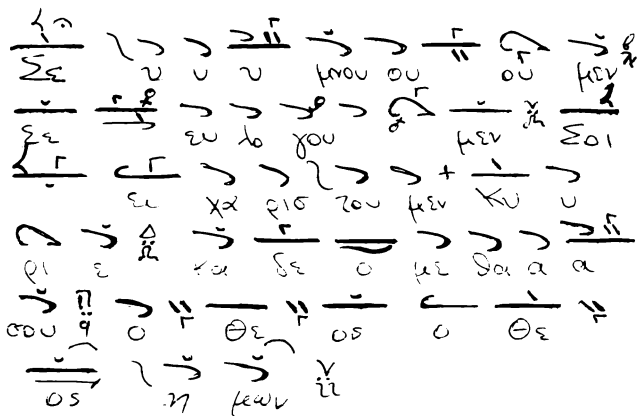 Σε υ υ υ μνου ου ου μεν
Σε ευ λο γου μεν Σοι
ει χα ρισ του μεν Κυ υ
ρι ε κα δε ο με θα α α
σου ο Θε ος ο Θε
ος η μων